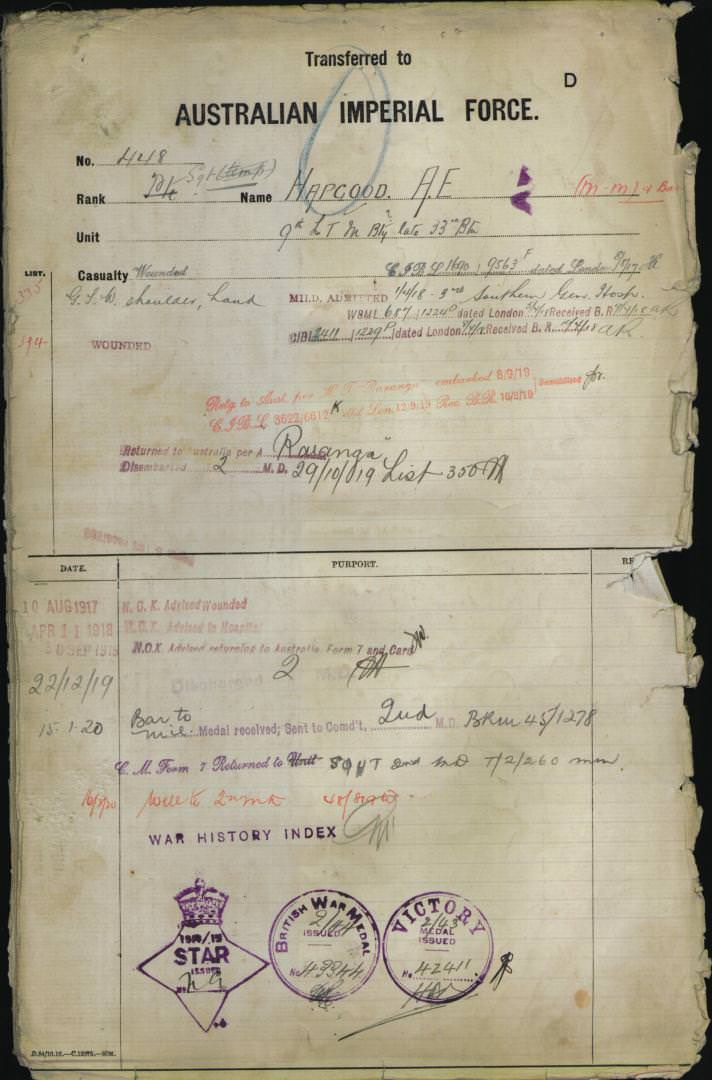 Transferred to
D
AUSTRALIAN IMPERIAL FORCE.
No. 448
Rank Sgt (temp) Name HAPGOOD. A.E (M-M) & Bar
Unit 9th L T M Bty late 33rd Btn
LIST.
Casualty Wounded C.I.B.L 1690 9563 F dated London
335 G.S.W. shoulder, hand MILD. ADMITTED 1/4/18 3rd Southern Gen. Hosp.
W3ML 687 1224 D dated London Received B.R.
394 WOUNDED CIBL 2411 1229 P dated London Received B. R. AK.
Retg. to Aust. per H.T. "Raranga" embarked 8/9/19
C.I.B.L 3622/6612 K dtd Lon. 12.9.19 Rec B.R. 10/9/19
Returned to Australia per A "Raranga"
Disembarked 2 M.D. 29/10/019 List 350
DATE. PURPORT. RE
10 AUG 1917 N.O.K Advised Wounded
APR 11 1918 N.O.K Advised in Hospital
SEP 1919 N.O.K Advised returning to Australia Form 7 and Card
22/12/19 Discharged 2 M.D.
15.1.20 Bar to Mil. Medal received; Sent to Comd't, 2nd M.D. BRM 45/1278
C. M. Form 7 Returned to Unit 2nd MD T/2/260
Will to 2nd MD
WAR HISTORY INDEX
1914/15
STAR
ISSUED
No
BRITISH WAR MEDAL
ISSUED
No 43944
VICTORY
2/43
MEDAL
ISSUED
No 42411
D.94/10.16.—C.12875.—50M.